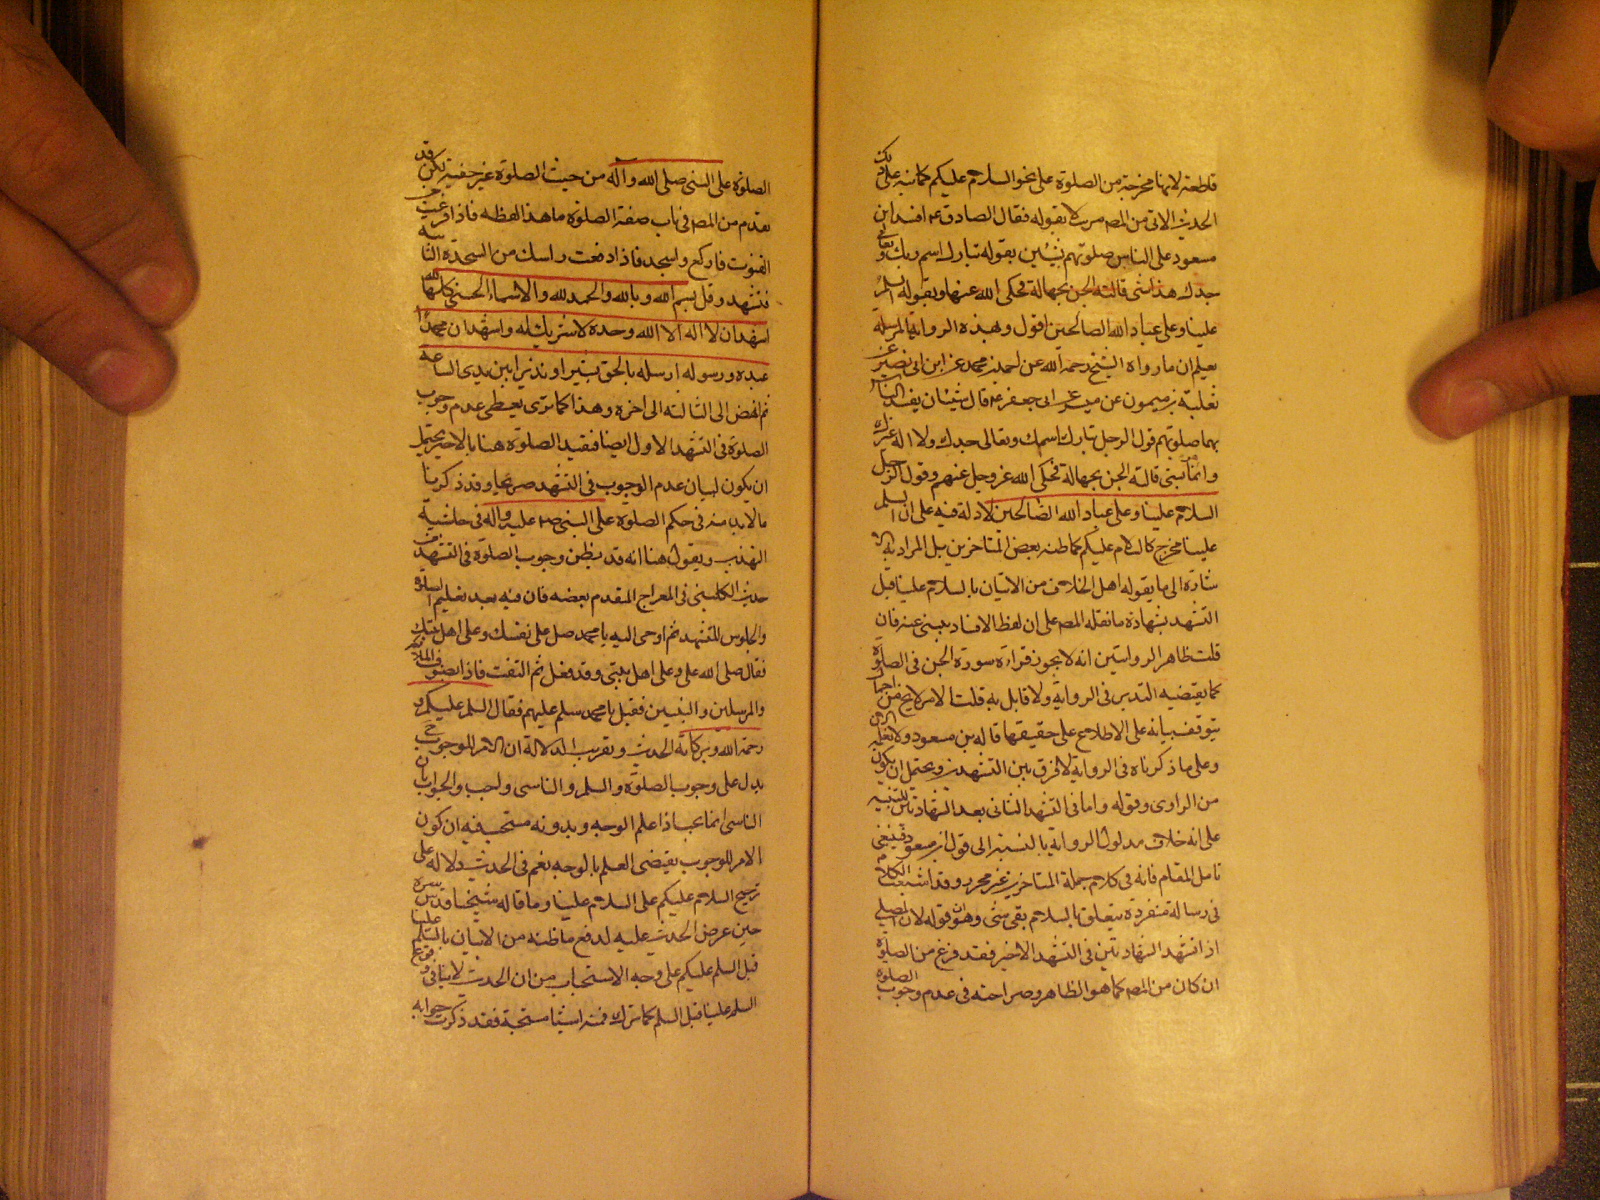 قاطعة لانها مخرجة من الصلوة على نحو السلام عليكم كما نبه على ذلك
الحديث الاتى من المصـ مرسلا بقوله فقال الصادق عم افسد ابن
مسعود على الناس صلوتهم بشيئين بقوله تبارك اسم ربك وتعالى
جدك هذا شى قالته الجن بجهالة فحكى الله عنها وبقوله السلم
علينا وعلى عباد الله الصالحين اقول وبهذه الرواية المرسلة
يعلم ان ما رواه الشيخ رحمه الله عن احمد بن محمد عن ابن ابى نصر عن
ثعلبة بن ميمون عن ميسر عن ابى جعفر عم قال شيئان يفسد الناس
بهما صلوتهم قول الرجل تبارك اسمك وتعالى جدك ولا اله غيرك
وانما شى قالته الجن بجهالة فحكى الله عز وجل عنهم وقول الرجل
السلام علينا وعلى عباد الله الصالحين لا دلالة فيه على ان السلم
علينا مخرج كالسلام عليكم كما ظنه بعض المتاخرين بل المراد به الا
شارة الى ما يقوله اهل الخلاف من الاتيان بالسلام علينا قبل
التشهد بشهادة ما نقله المصـ على ان لفظ الافساد ينبى عنه فان
قلت ظاهر الروايتين انه لا يجوز قراءة سورة الجن فى الصلوة
كما يقتضيه التدبر فى الرواية ولا قائل به قلت الامر لا يخ من اجمال
يتوقف بيانه على الاطلاع على حقيقة ما قاله بن مسعود ولا نعلمه الان
وعلى ما ذكرناه فى الرواية لا فرق بين التشهدين ويحتمل ان يكون
من الراوى وقوله واما فى التشهد الثانى بعد الشهادتين للتنبيه
على انه خلاف مدلول الرواية بالنسبة الى قول ابن مسعود فينبغى
تامل المقام فانه فى كلام جملة المتاخرين غير محرر وقد اشبعت الكلام
فى رسالة منفردة يتعلق بالسلام بقى شى وهو قوله لان المصلى
اذا تشهد الشهادتين فى التشهد الاخير فقد فرغ من الصلوة
ان كان من المصـ كما هو الظاهر وصراحته فى عدم وجوب الصلوة
الصلوة على النبى صلى الله واله من حيث الصلوة غير خفية لكن قد
تقدم من المصـ فى باب صفة الصلوة ما هذا لفظه فاذا فرغت من
القنوت فاركع واسجد فاذا رفعت راسك من السجدة الثانية
فتشهد وقل بسم الله وبالله والحمد لله والاسماء الحسنى كلها لله
اشهد ان لا اله الا الله وحده لا شريك له واشهد ان محمدا
عبده ورسوله ارسله بالحق بشيرا ونذيرا بين يدى الساعة
ثم انهض الى الثالثة الى اخره وهذا كما ترى يعطى عدم وجوب
الصلوة فى التشهد الاول ايضا فتقييد الصلوة هنا بالاخير يحتمل
ان يكون لبيان عدم الوجوب فى التشهد صريحا وقد ذكرنا
ما لابد منه فى حكم الصلوة على النبى صلى عليه واله فى حاشية
التهذيب ويقول هنا انه قد يظن وجوب الصلوة فى التشهد من
حديث الكلينى فى المعراج المقدم بعضه فان فيه بعد تعليم الصلوة
والجلوس للتشهد ثم اوحى اليه يا محمد صل على نفسك وعلى اهل بيتك
فقال صلى الله على وعلى اهل بيتى وقد فعل ثم التفت فاذا بصفوف من الملائكة
والمرسلين والنبيين فقيل يا محمد سلم عليهم فقال السلم عليكم و
رحمة الله وبركاته الحديث وتقريب الدلالة ان الامر للوجوب ح
يدل على وجوب الصلوة والسلم والتاسى واجب والجواب ان
التاسى انما يجب اذا علم الوجه وبدونه مستحب فيه ان كون
الامر للوجوب يقتضى العلم بالوجه نعم فى الحديث دلالة على
ترجيح السلام عليكم على السلام علينا وما قاله شيخنا قدس سره
حين عرض الحديث عليه لدفع ما ظنه من الاتيان بالسلم علينا
قبل السلم عليكم على وجه الاستحباب من ان الحديث لا ينافى وقوع
السلم علينا قبل السلم كما ترك فيه اشيا مستحبة فقد ذكرت جوابه